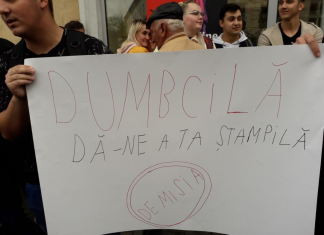 DUMBCILĂ
DĂ-NE A TA ȘTAMPILĂ
DEMISIA